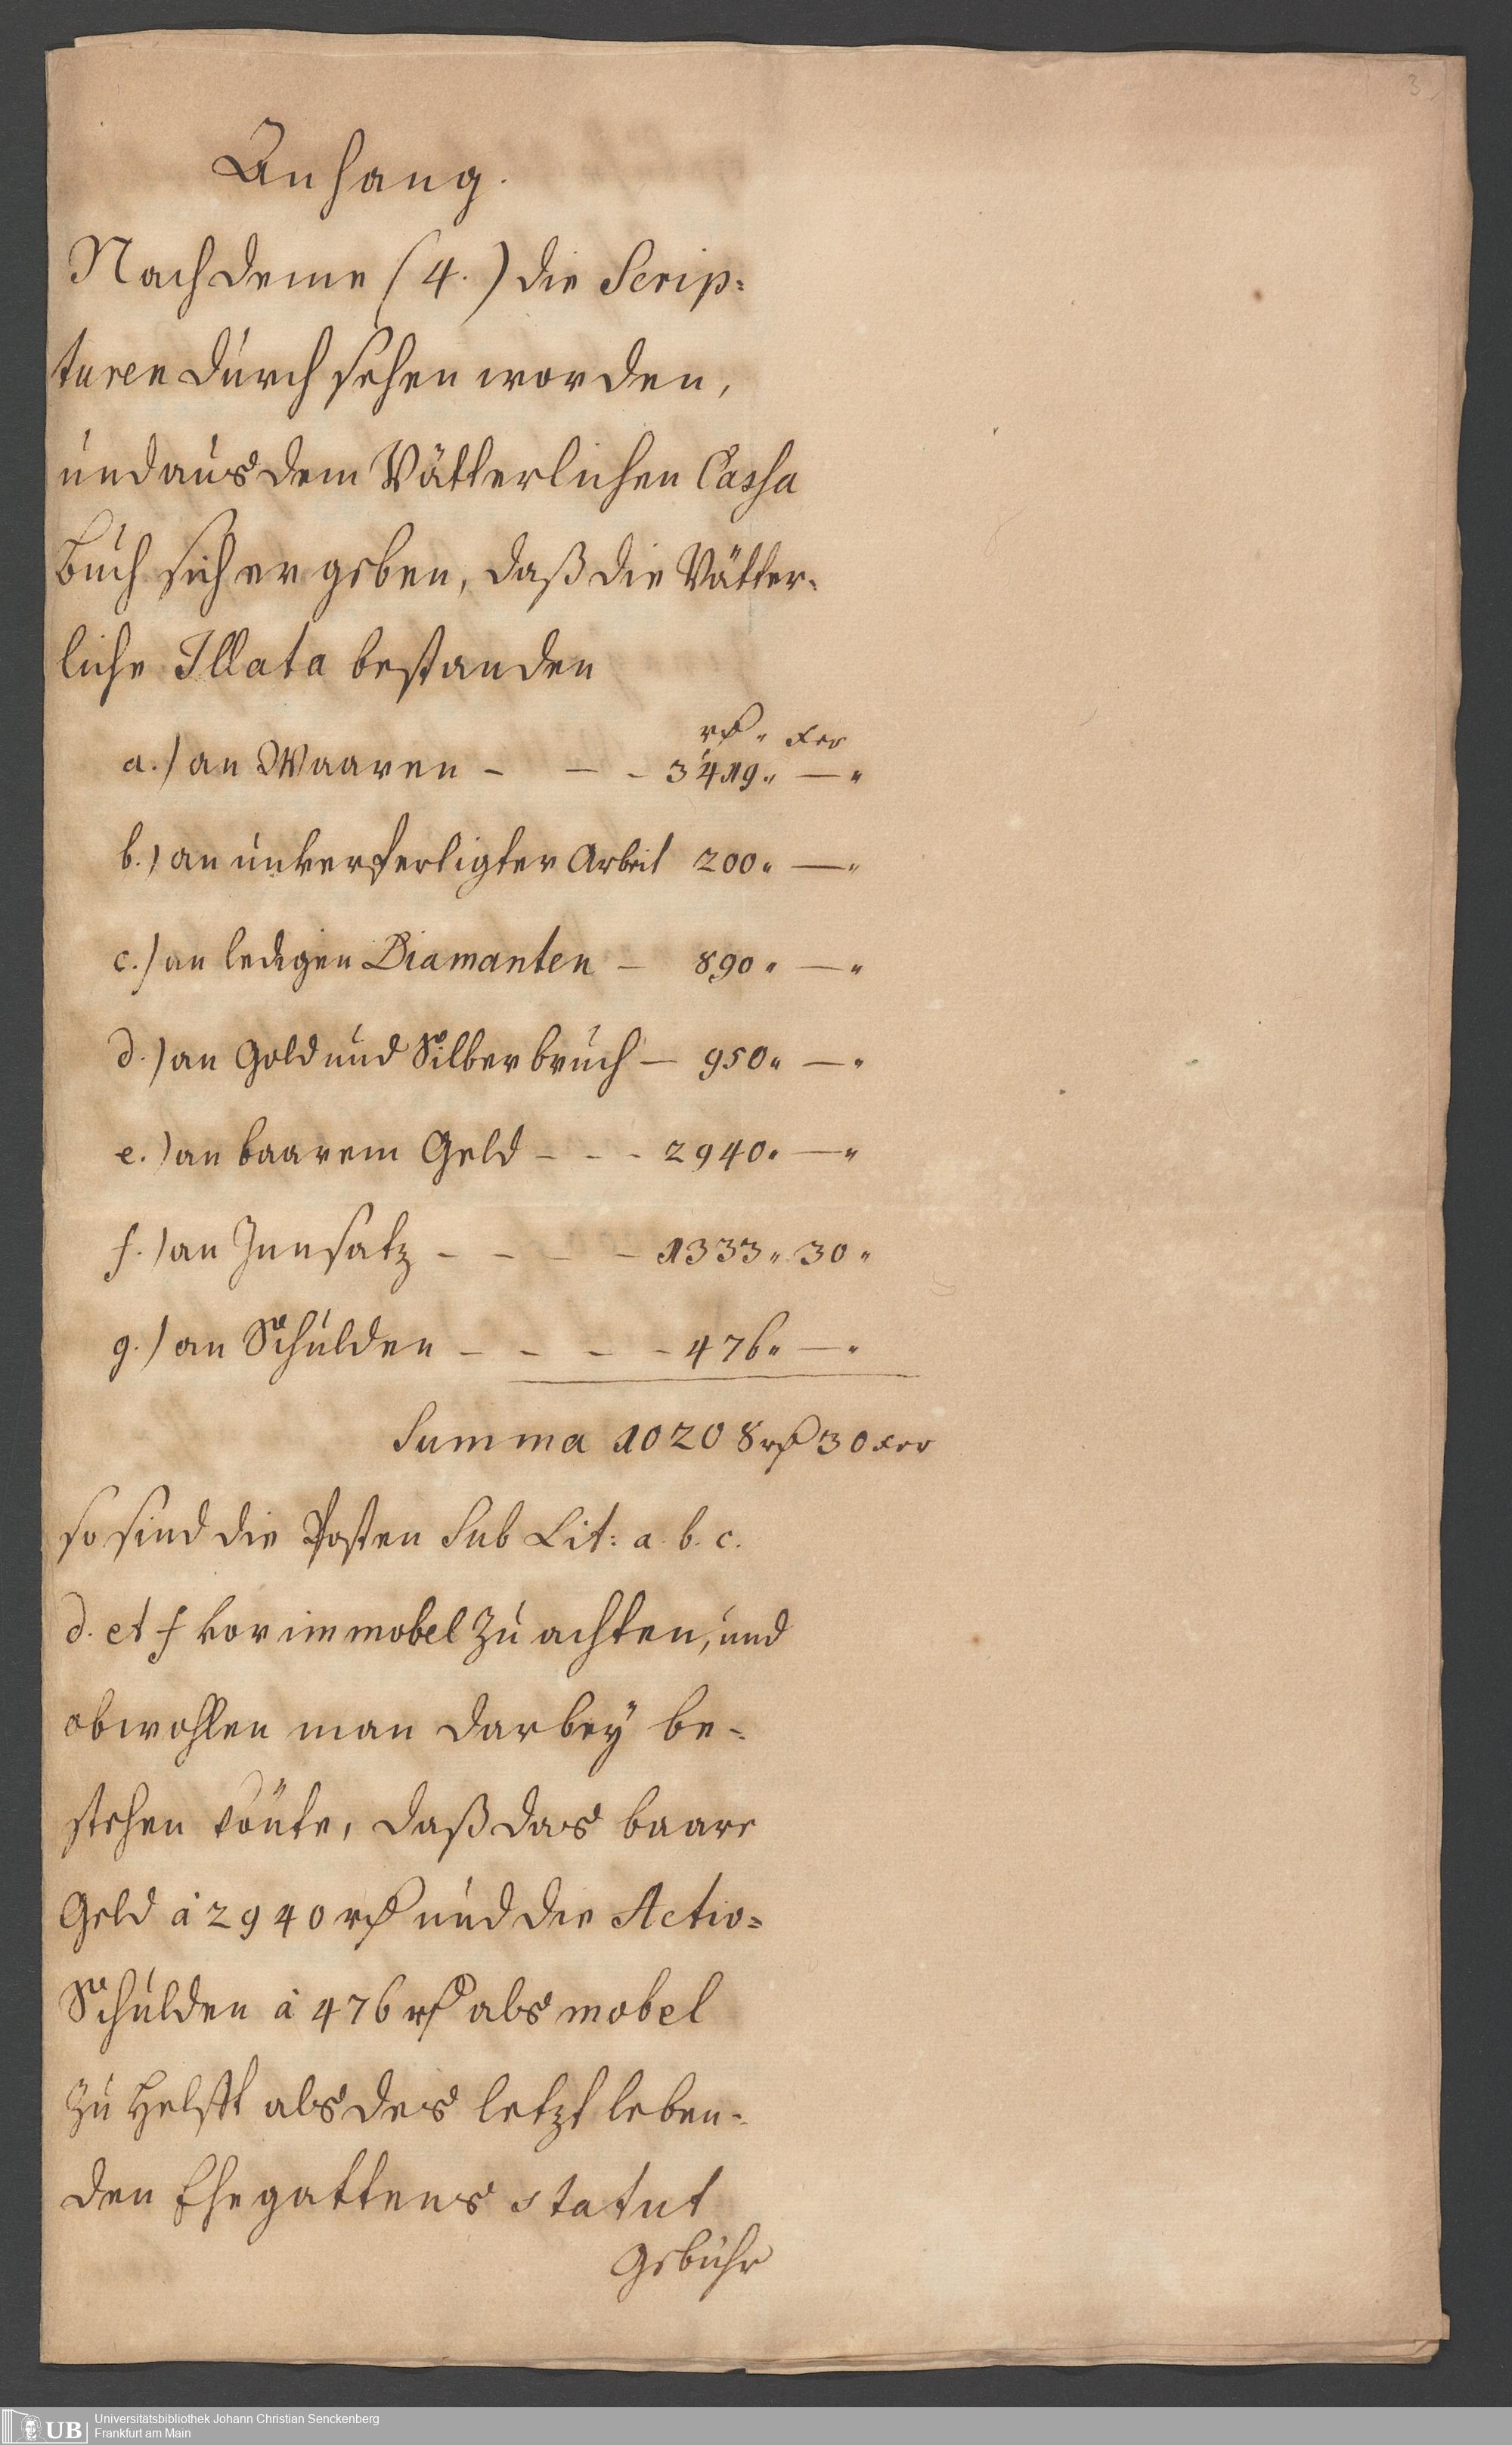 3
Anhang.
Nachdeme (4.) die Scrip=
turen durchsehen worden,
und aus dem Vätterlichen Cassa
buch sich ergeben, daß die Vätter=
liche Illata bestanden
rf. xer
a.) an Waaren - - - 3419. — "
b.) an unverfertigter Arbeit 200. — "
c.) an ledigen Diamanten - 890. — "
d.) an Gold und Silberbruch — 950. — "
e.) an baarem Geld - - - 2940. — "
f.) an Innsatz - - - - 1333. 30 "
g.) an Schulden - - - - 476. — "
Summa 10208 rf 30 xer
so sind die Posten Sub Lit: a. b. c.
d. et f vor immobel zu achten, und
obwohlen man darbey be=
stehen könte, daß das baare
Geld à 2940 rf und die Activ=
Schulden à 476 rf als mobel
zu Helfft als des letzt leben=
den Ehegattens statut
Gebühr
UB
Universitätsbibliothek Johann Christian Senckenberg
Frankfurt am Main